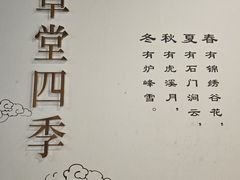 草堂四季
春有锦绣谷花，
夏有石门涧云，
秋有虎溪月，
冬有炉峰雪。